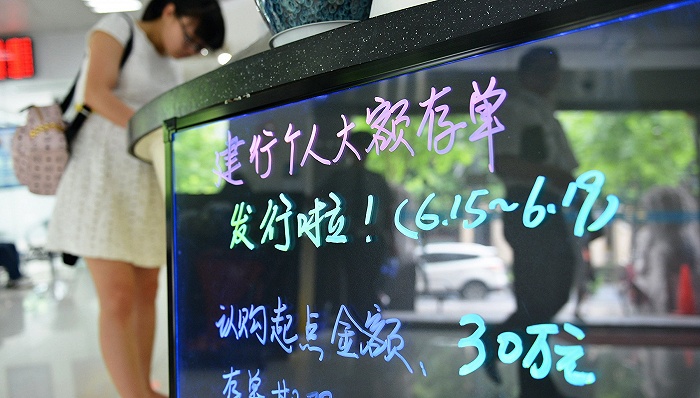 建行个人大额存单
发行啦！(6.15~6.19)
认购起点金额、30万元
存单